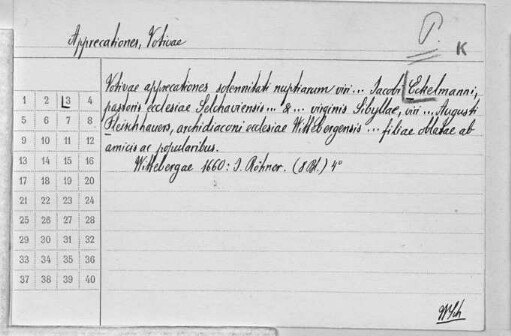 P.
K
Apprecationes, Votivae
Votivae apprecationes solennitati nuptiarum viri ... Jacobi Eckelmanni,
pastoris ecclesiae Selchaviensis ... & ... virginis Sibyllae, viri ... Augusti
Fleischhauers, archidiaconi ecclesiae Wittebergensis ... filiae oblatae ab
amicis ac popularibus.
Wittebergae 1660: J. Röhner. (8 Bl.) 4°
1 2 3 4
5 6 7 8
9 10 11 12
13 14 15 16
17 18 19 20
21 22 23 24
25 26 27 28
29 30 31 32
33 34 35 36
37 38 39 40